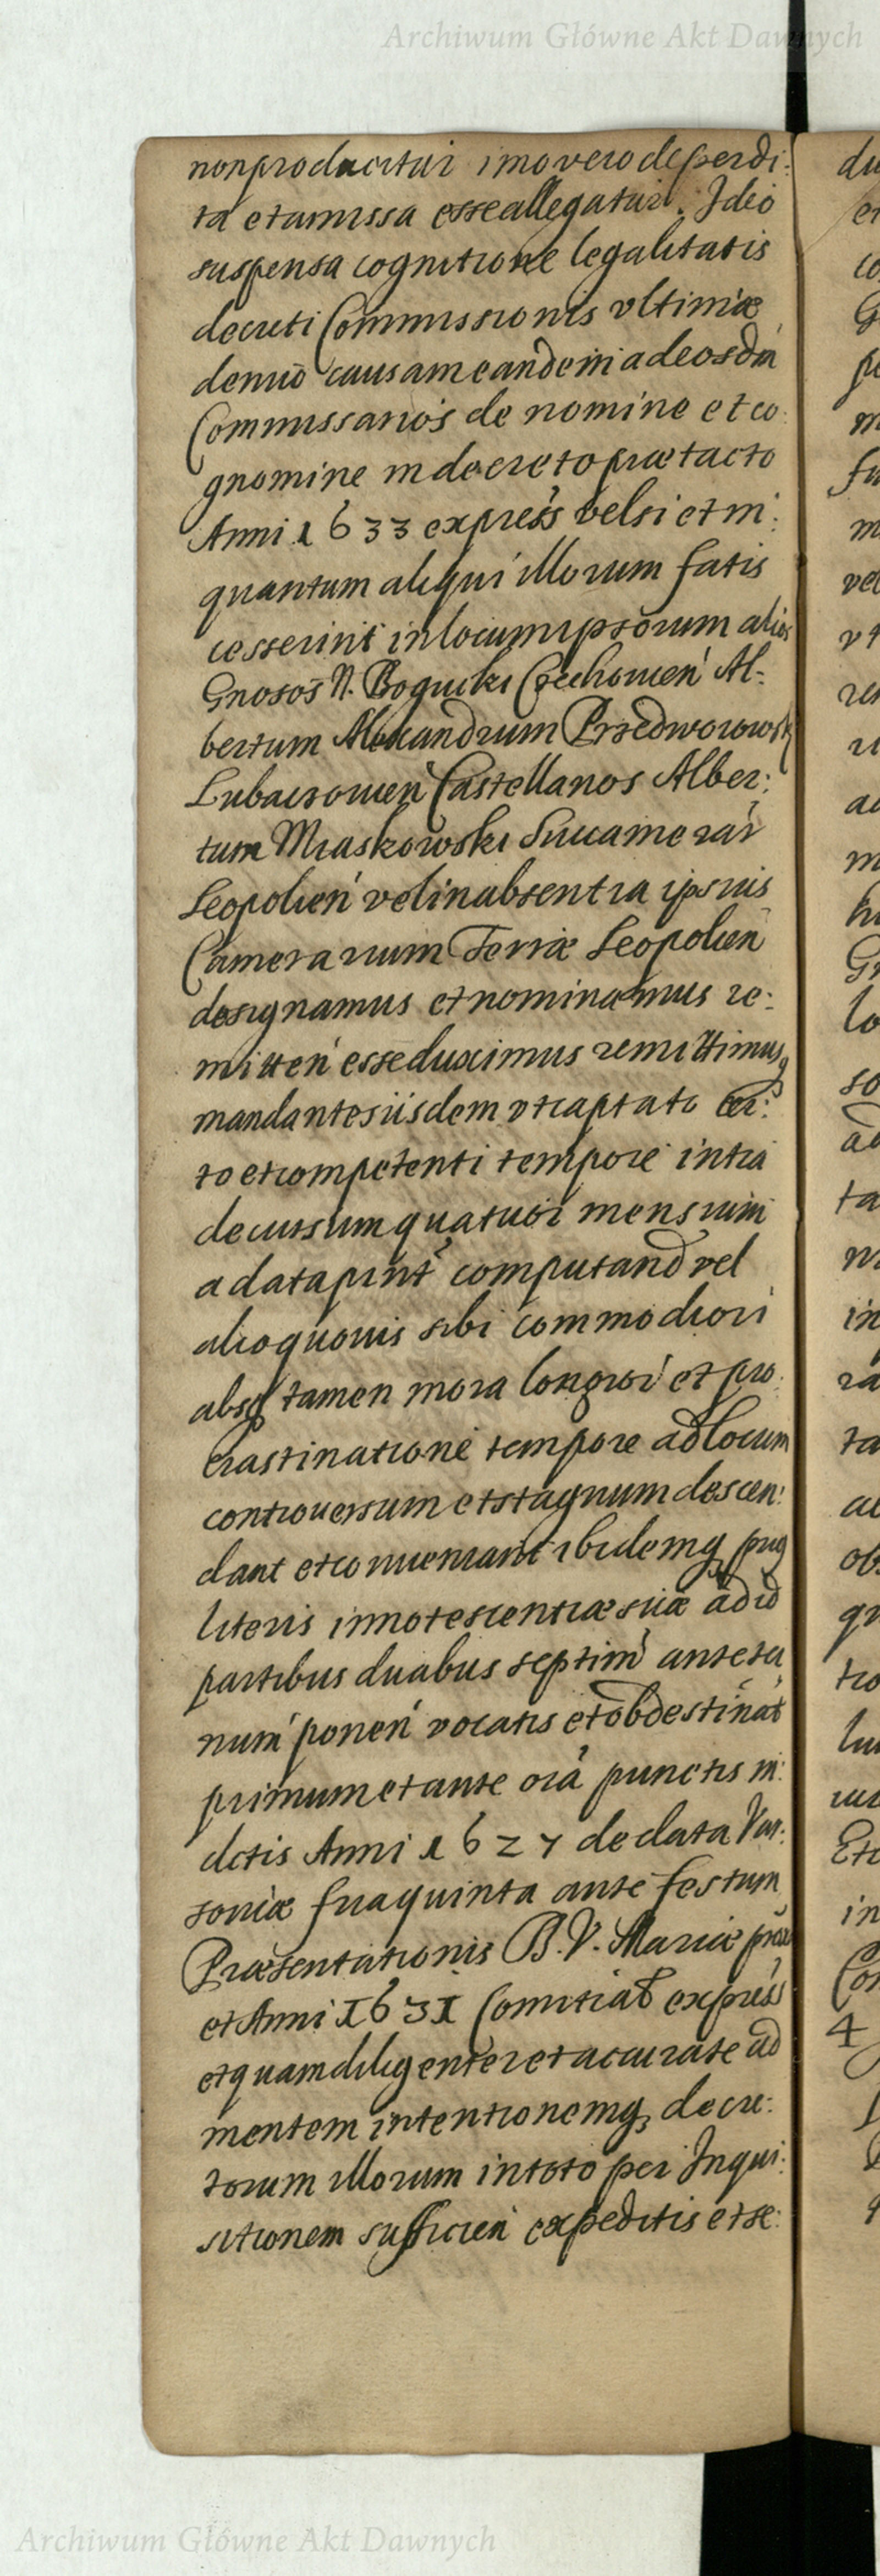 Archiwum Główne Akt Dawnych
non producitur imo vero deperdi:
ta et amissa esse allegatur. Ideo
suspensa cognitione legalitatis
decreti Commissionis vltimæ
denuo causam eandem ad eosdm
Commissarios de nomine et co:
gnomine in decreto prætacto
Anni 1633 express vel si et in:
quantum aliqui illorum fatis
cesserint in locum ipsorum alios
Gnosos N. Bogucki Czechowen Al:
bertum Alexandrum Przedworowsk
Lubaczowien Castellanos Alber:
tum Miaskowski Succamerar
Leopolien vel in absentia ipsius
Camerarium Terræ Leopolien
designamus et nominamus re:
mitten esse duximus remittimusq
mandantes iisdem vt captato cer:
to et competenti tempore intra
decursum quatuor mensium
a data pnt computand vel
alio quouis sibi commodiori
absq tamen mora longiori et pro:
crastinatione tempore ad locum
controuersum et stagnum descen:
dant et conueniant ibidemq
literis innotescentiæ suæ ad id
partibus duabus septim ante
num ponen vocatis et ob destinat
primum et ante oia punctis in:
dctis Anni 1627 de data Var:
souiæ fria quinta ante festum
Præsentationis B. V. Mariæ
et Anni 1631 Comitial express
et quam diligenter et accurate ad
mentem intentionemq decre:
torum illorum in toto per Inqui:
sitionem sufficien expeditis et se:
du
er
co
G
pe
m
fu
m
vel
vt
ren
ad
m
hi
Gn
lo
so
ad
ta
m
in
ra
ta
ac
ob
qu
tio
lu
Etc
in
Con
4
Archiwum Główne Akt Dawnych